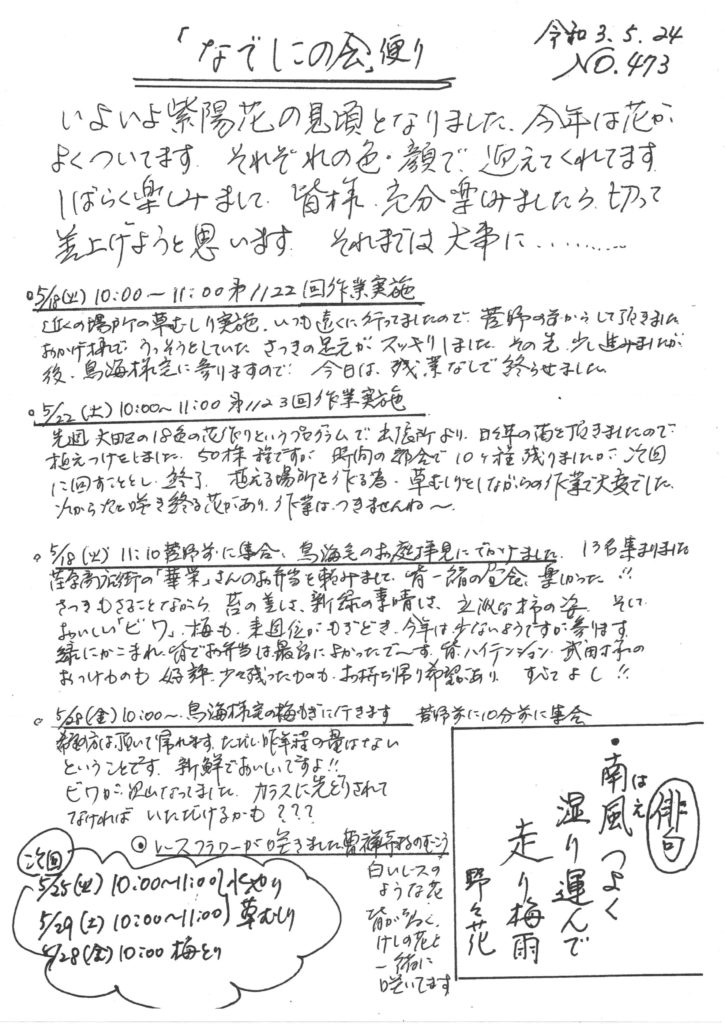 「なでしこの会」便り
令和3.5.24
NO.473
いよいよ紫陽花の見頃となりました。今年は花が
よくついてます。それぞれの色・顔で迎えてくれてます
しばらく楽しみまして、皆様、充分楽しみましたら、切って
差上げようと思います。それまでは大事に‥‥‥‥
○5/18(火)10:00〜11:00第1122回作業実施
近くの場所の草むしり実施。いつも遠くに行ってましたので、菅野の前からして頂きました
おかげ様で、うっそうとしていたさつきの足元がスッキリしました。その先、少し進みましたが
後、鳥海様宅に参りますので、今日は、残業なしで終らせました。
○5/22(土)10:00〜11:00第1123回作業実施
先週、大田区の18色の花作りというプログラムで出張所より、日々草の苗を頂きましたので
植えつけをしました。50株程ですが、時間の都合で10ヶ程残りましたが、次回
に回すこととし、終了。植える場所を作る為、草むしりをしながらの作業で大変でした。
次から次と咲き終る花があり、作業は、つきませんね〜
○5/18(火)11:10菅野前に集合、鳥海宅のお庭拝見にでかけました。13名集まりました
商店街の「華栄」さんのお弁当を頼みまして、皆一緒の昼食、楽しかった!!
さつきもさることながら、苔の美しさ、新緑の素晴しさ、立派な柿の姿、そして
おいしい「ビワ」、梅も、来週位がもぎどき、今年は少ないようですが参ります。
緑にかこまれ、皆でお弁当は最高によかったで〜す。皆ハイテンション、武田さんの
おつけものも好評、少々残ったものも、お持ち帰り希望があり、すべてよし!!
○5/28(金)10:00〜鳥海様宅の梅もぎに行きます 菅野前に10分前に集合
希望の方は頂いて帰れます。ただし昨年程の量はない
ということです。新鮮でおいしいですよ!!
ビワが沢山なってました。カラスに先どりされて
なければいただけるかも???
⦿レースフラワーが咲きました
白いレースの
ような花
けしの花と
一緒に
咲いてます
次回
5/25(火)10:00〜11:00 水やり
5/29(土)10:00〜11:00 草むしり
5/28(金)10:00 梅とり
俳句
・南風つよく
はえ
湿り運んで
走り梅雨
野々花